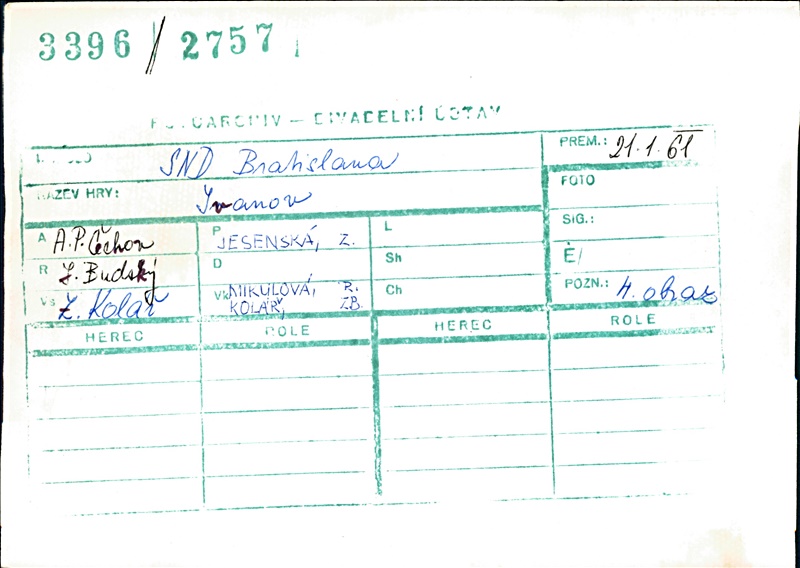 3396/2757
FOTOARCHIV — DIVADELNÍ ÚSTAV
SND Bratislava
PREM.: 21.1.61
NÁZEV HRY: Ivanov
FOTO
SIG.:
A A.P. Čechov
P JESENSKÁ, Z.
L
R J. Budský
D
Sh
Č/
Vs Z. Kolář
Vk MIKULOVÁ, R.
KOLÁŘ, ZB.
Ch
POZN.: 4. obraz
HEREC ROLE HEREC ROLE